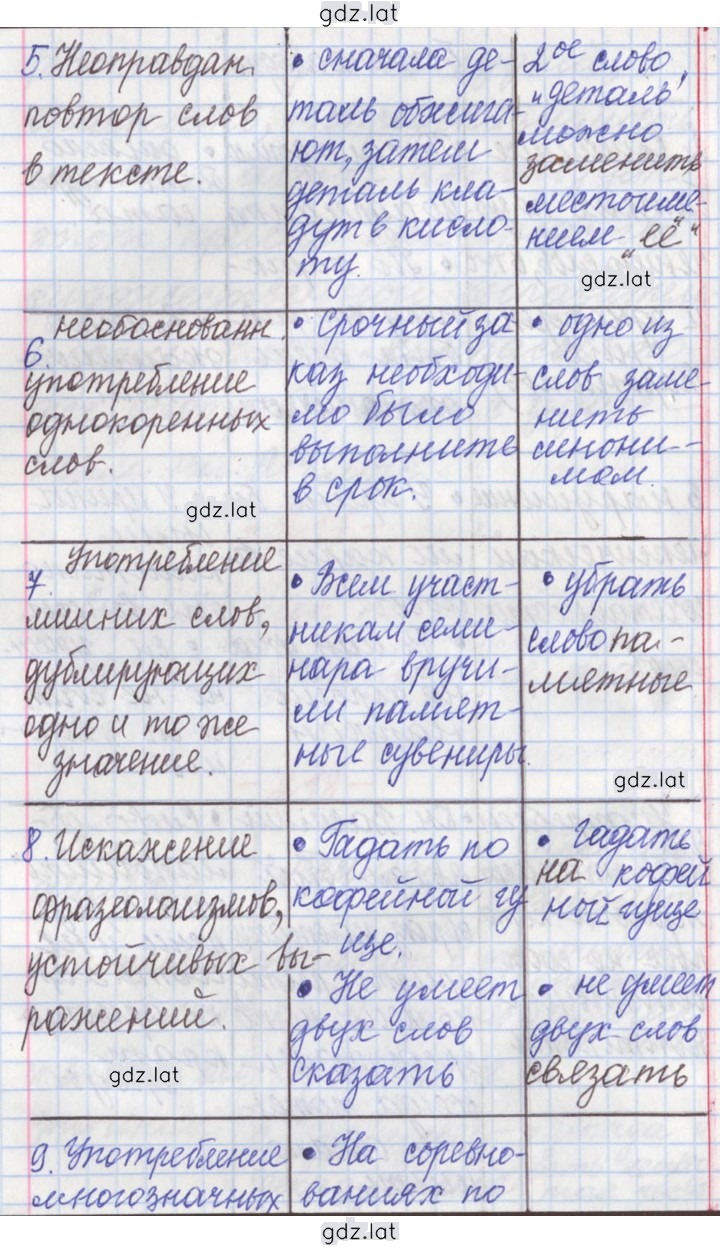 gdz.lat
5. Неоправдан.
повтор слов
в тексте.
• сначала де-
таль обжига-
ют, затем
деталь кла-
дут в кисло-
ту.
2ое слово
"деталь"
можно
заменить
местоиме-
нием "её"
gdz.lat
6. необоснованн.
употребление
однокоренных
слов.
gdz.lat
• Срочный за
каз необходи-
мо было
выполнить
в срок.
• одно из
слов заме-
нить
синони-
мом.
7. Употребление
лишних слов,
дублирующих
одно и то же
значение.
• Всем участ-
никам семи-
нара вручи-
ли памят-
ные сувениры.
• убрать
слово па-
мятные
gdz.lat
8. Искажение
фразеологизмов,
устойчивых вы-
ражений.
gdz.lat
• Гадать по
кофейной гу
ще.
• Не умеет
двух слов
сказать
• гадать
на кофей
ной гуще
• не умеет
двух слов
связать
9. Употребление
многозначных
• На соревно-
ваниях по
gdz.lat